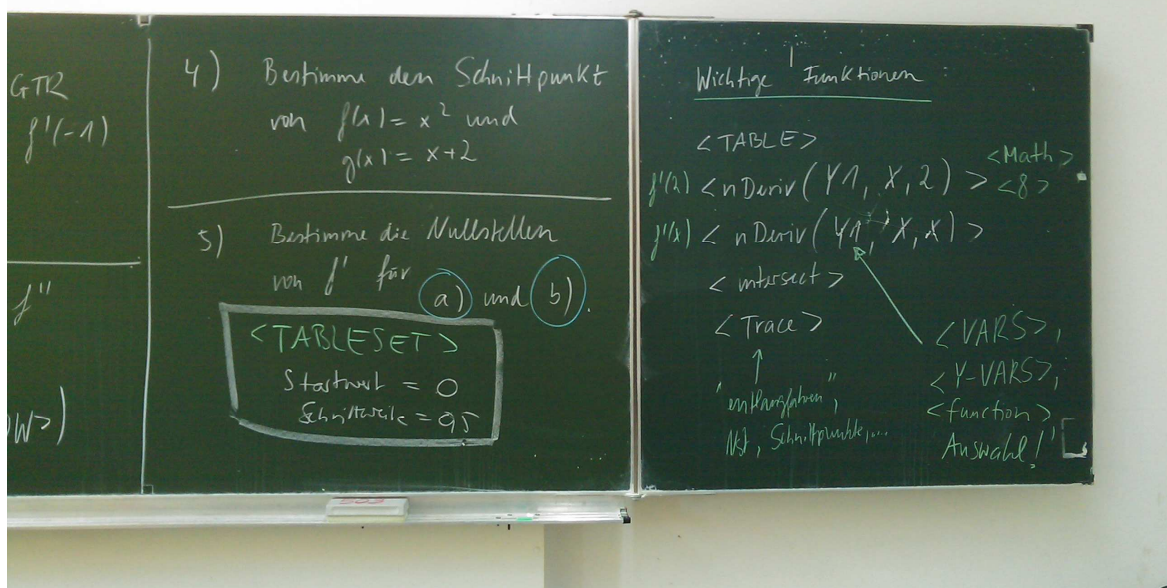 GTR
f'(-1)
f"
OW>)
4) Bestimme den Schnittpunkt
von f(x) = x² und
g(x) = x+2
5) Bestimme die Nullstellen
von f' für a) und b).
<TABLESET>
Startwert = 0
Schrittweite = 0,5
Wichtige Funktionen:
<TABLE>
f'(2) <nDeriv(Y1, X, 2)> <Math>
<8>
f'(x) <nDeriv(Y1, X, X)>
<intersect>
<Trace>
"entlangfahren",
Nst, Schnittpunkte,...
<VARS>,
<Y-VARS>,
<function>
Auswahl!